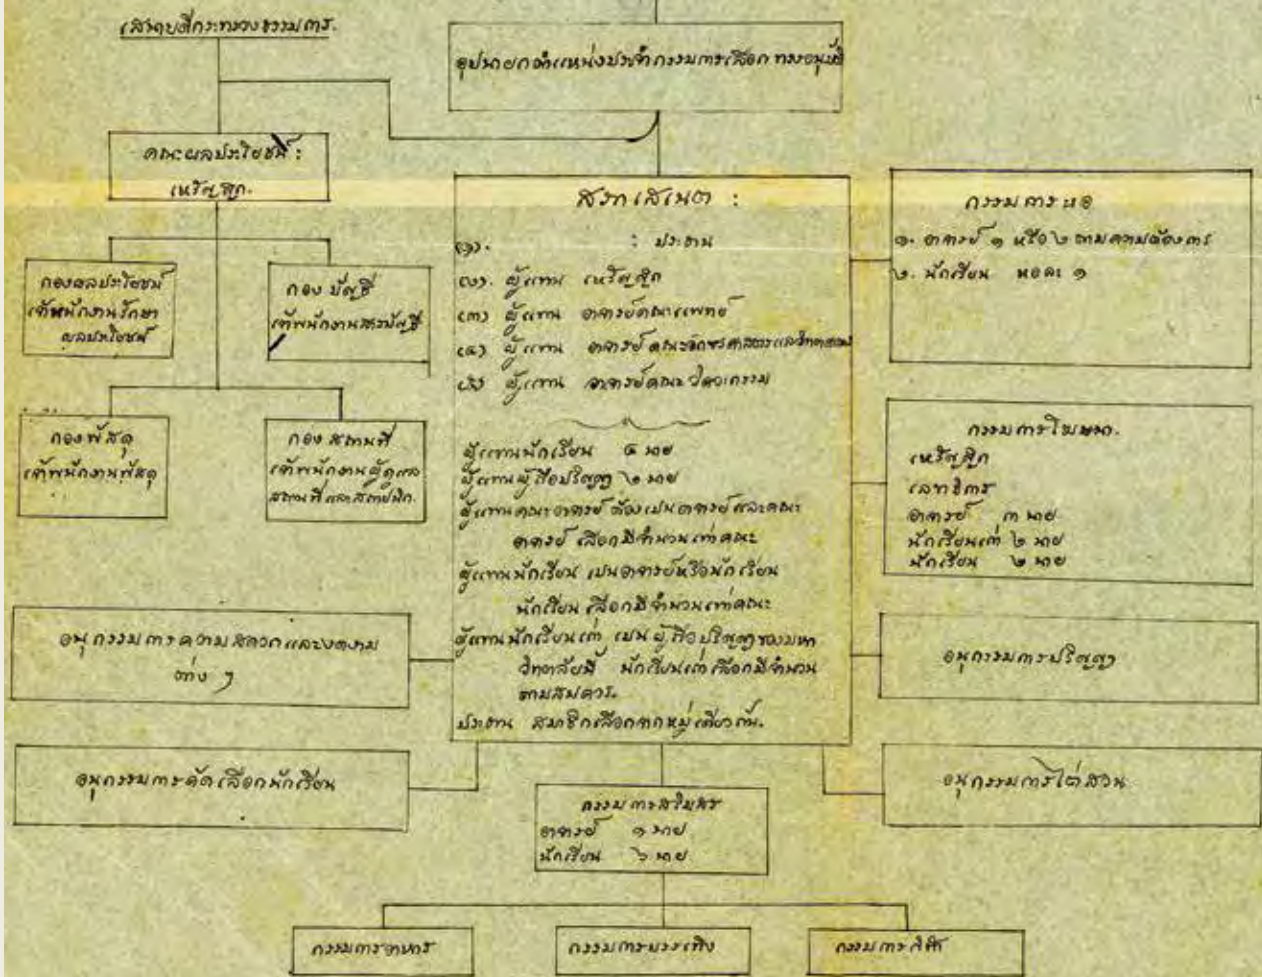 เสนาบดีกระทรวงธรรมการ.
อุปนายกตำแหน่งประจำกรรมการเลือก ทรงอนุมัติ
คณะผลประโยชน์ :
เหรัญญิก.
กองผลประโยชน์
เจ้าพนักงานรักษา
ผลประโยชน์
กอง บัญชี
เจ้าพนักงานสารบัญชี
กองพัสดุ
เจ้าพนักงานพัสดุ
กอง สถานที่
เจ้าพนักงานผู้ดูแล
สถานที่และสถาปนิก.
สภาเสเนต :
(๑). : ประธาน
(๒). ผู้แทน เหรัญญิก
(๓) ผู้แทน อาจารย์คณะแพทย์
(๔) ผู้แทน อาจารย์คณะอักษรศาสตร์และวิทยาศาสตร์
(๕) ผู้แทน อาจารย์คณะวิศวะกรรม
ผู้แทนนักเรียน ๔ นาย
ผู้แทนผู้ถือปริญญา ๒ นาย
ผู้แทนคณะอาจารย์ ต้องเปนอาจารย์ และคณะ
อาจารย์ เลือกมีจำนวนเท่าคณะ
ผู้แทนนักเรียน เปนอาจารย์หรือนักเรียน
นักเรียน เลือกมีจำนวนเท่าคณะ
ผู้แทนนักเรียนเก่า เปน ผู้ถือปริญญาของมหา
วิทยาลัยนี้ นักเรียนเก่าเลือกมีจำนวน
ตามสมควร.
ประธาน สมาชิกเลือกจากหมู่เดียวกัน.
กรรมการหอ
๑. อาจารย์ ๑ หรือ ๒ ตามความต้องการ
๒. นักเรียน หอละ ๑
กรรมการโฆษนา.
เหรัญญิก
เลขาธิการ
อาจารย์ ๓ นาย
นักเรียนเก่า ๒ นาย
นักเรียน ๒ นาย
อนุกรรมการความสดวกและงดงาม
ต่าง ๆ
อนุกรรมการปริญญา
อนุกรรมการคัดเลือกนักเรียน
อนุกรรมการไต่สวน
กรรมการสโมสร
อาจารย์ ๑ นาย
นักเรียน ๖ นาย
กรรมการอาหาร
กรรมการบรรเทิง
กรรมการกีฬา